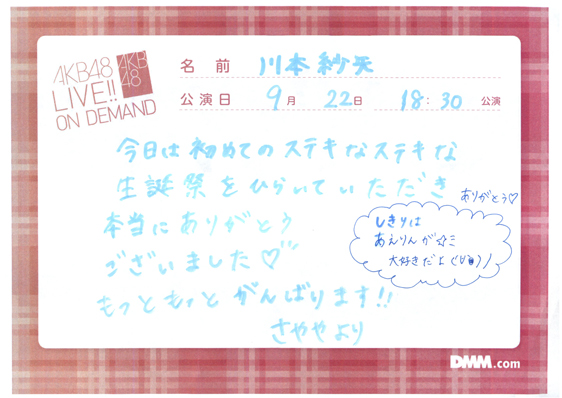 AKB48
LIVE!!
ON DEMAND
AKB
48
名 前 川本紗矢
公演日 9月 22日 18:30 公演
今日は初めてのステキなステキな
生誕祭をひらいていただき
本当にありがとう
ございました♡
もっともっとがんばります!!
さややより
ありがとう♡
しきりは
あえりんが☆ミ
大好きだよ
DMM.com